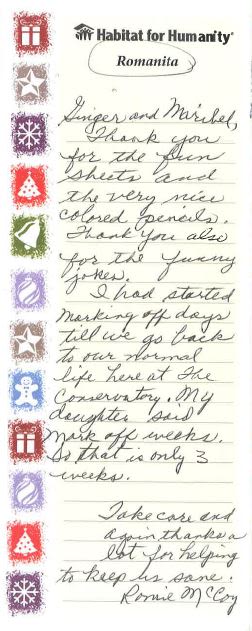 Habitat for Humanity®
Romanita
Ginger and Maribel,
Thank you
for the fun
sheets and
the very nice
colored pencils.
Thank you also
for the funny
jokes.
I had started
marking off days
till we go back
to our normal
life here at The
Conservatory. My
daughter said
mark off weeks.
So that is only 3
weeks.
Take care and
again thanks a
lot for helping
to keep us sane.
Ronnie McCoy